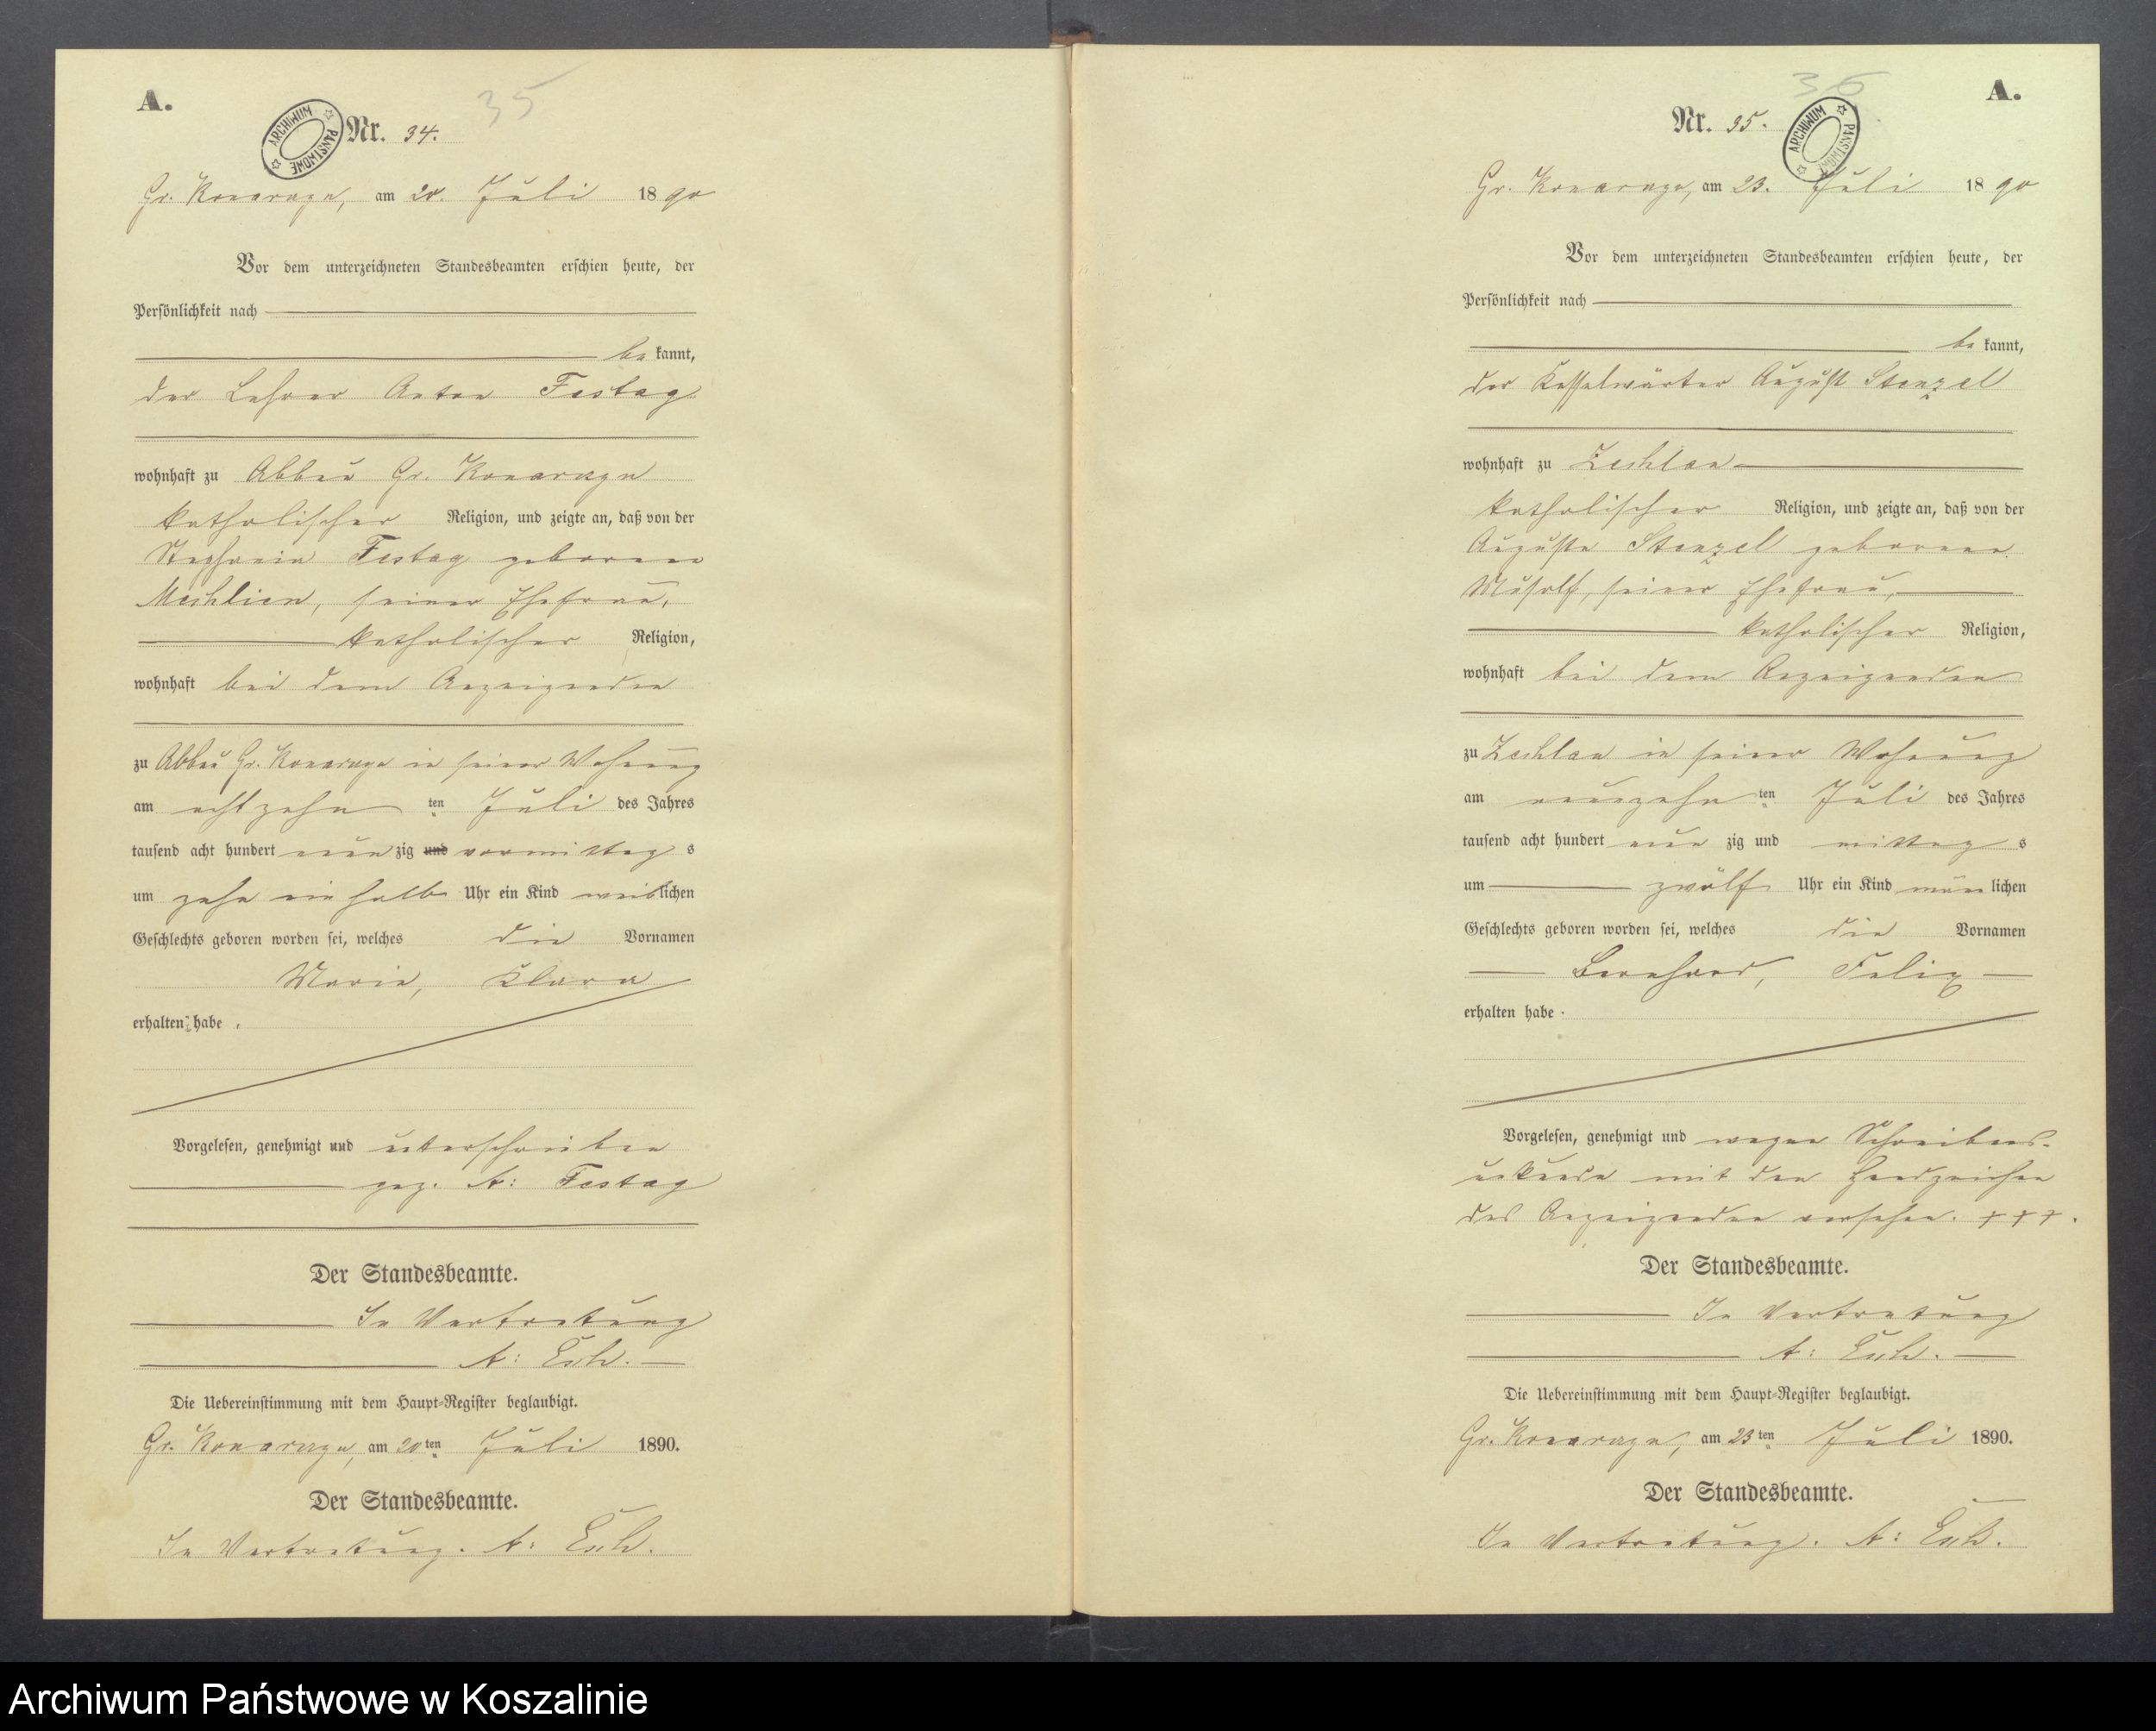 A.
35
ARCHIWUM PAŃSTWOWE
Nr. 34.
Gr. Konarzyn, am 20. Juli 1890
Vor dem unterzeichneten Standesbeamten erschien heute, der
Persönlichkeit nach
be kannt,
der Lehrer Anton Festag
wohnhaft zu Abbau Gr. Konarzyn
katholischer Religion, und zeigte an, daß von der
Festag geborene
seiner Ehefrau,
katholischer Religion,
wohnhaft bei dem Anzeigenden
zu Abbau Gr. Konarzyn in seiner Wohnung
am achtzehn ten Juli des Jahres
tausend acht hundert neun zig und vormittag s
um zehn ein halb Uhr ein Kind weiblichen
Geschlechts geboren worden sei, welches die Vornamen
Maria, Klara
erhalten habe.
Vorgelesen, genehmigt und unterschrieben
gez. A: Festag
Der Standesbeamte.
In Vertretung
A:
Die Uebereinstimmung mit dem Haupt-Register beglaubigt.
Gr. Konarzyn, am 20ten Juli 1890.
Der Standesbeamte.
In Vertretung. A:
36
A.
Nr. 35.
ARCHIWUM PAŃSTWOWE
Gr. Konarzyn, am 23. Juli 1890
Vor dem unterzeichneten Standesbeamten erschien heute, der
Persönlichkeit nach
be kannt,
der Kesselwärter August Stenzel
wohnhaft zu Zechlau
katholischer Religion, und zeigte an, daß von der
Auguste Stenzel geborene
Musolf, seiner Ehefrau,
katholischer Religion,
wohnhaft bei dem Anzeigenden
zu Zechlau in seiner Wohnung
am neunzehn ten Juli des Jahres
tausend acht hundert neun zig und mittag s
um zwölf Uhr ein Kind männlichen
Geschlechts geboren worden sei, welches die Vornamen
Bernhard, Felix
erhalten habe.
Vorgelesen, genehmigt und wegen Schreibens-
unkunde mit den Handzeichen
des Anzeigenden versehen. +++.
Der Standesbeamte.
In Vertretung
A:
Die Uebereinstimmung mit dem Haupt-Register beglaubigt.
Gr. Konarzyn, am 23ten Juli 1890.
Der Standesbeamte.
In Vertretung. A:
Archiwum Państwowe w Koszalinie